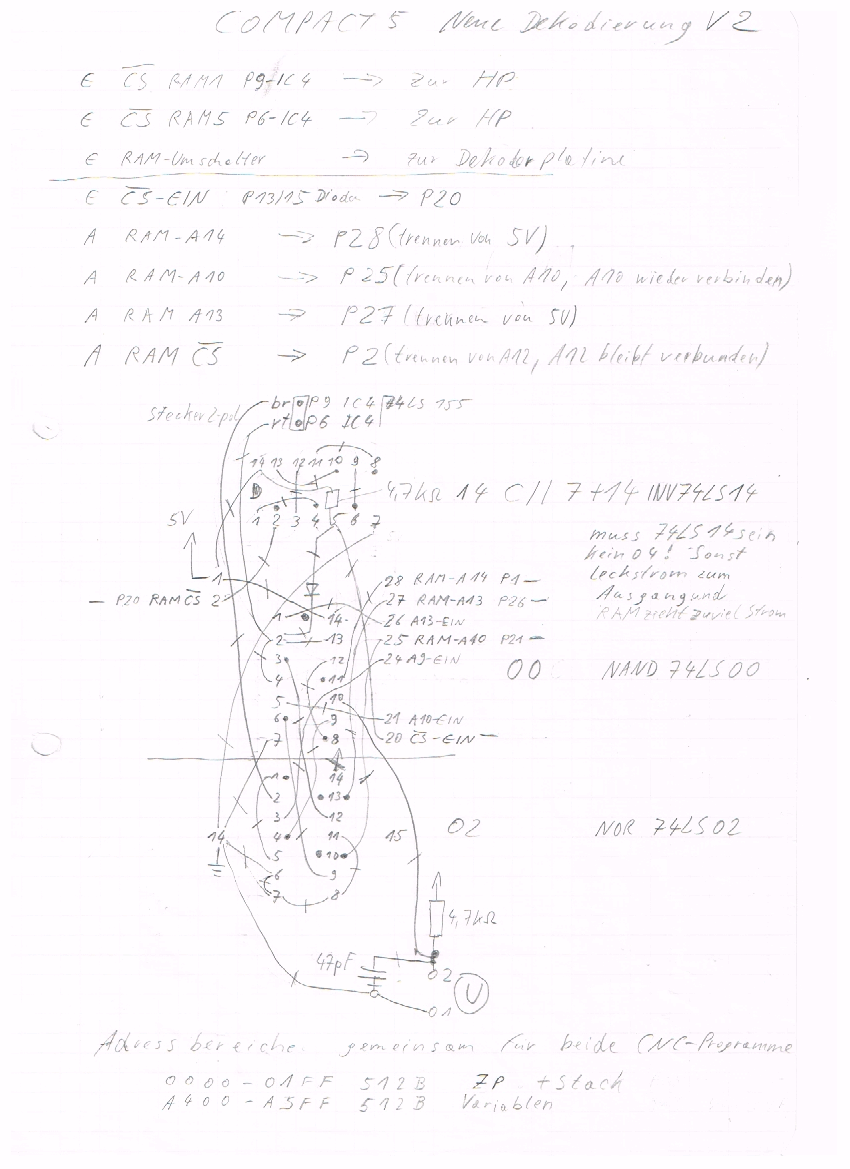 COMPACT 5 Neue Dekodierung V2
E C̅S̅ RAM1 P9-IC4 → zur HP
E C̅S̅ RAM5 P6-IC4 → zur HP
E RAM-Umschalter → zur Dekoderplatine
E C̅S̅-EIN P13/15 Dioden → P20
A RAM-A14 → P28 (trennen von 5V)
A RAM-A10 → P25 (trennen von A10, A10 wieder verbinden)
A RAM A13 → P27 (trennen von 5V)
A RAM C̅S̅ → P2 (trennen von A12, A12 bleibt verbunden)
Stecker 2-pol
br P9 IC4 74LS155
rt P6 IC4
14 13 12 11 10 9 8
D
4,7kΩ 14 C// 7+14 INV 74LS14
1 2 3 4 5 6 7
5V
muss 74LS14 sein
kein 04! Sonst
Leckstrom zum
Ausgang und
RAM zieht zuviel Strom
1
28 RAM-A14 P1 —
— P20 RAM C̅S̅ 2
27 RAM-A13 P26 —
1 14 26 A13-EIN
2 13 25 RAM-A10 P21 —
3 12 24 A9-EIN
4 11 00 NAND 74LS00
5 10
6 9 21 A10-EIN
7 8 20 C̅S̅-EIN —
1 14
2 13
3 12
14 4 11 15 02 NOR 74LS02
5 10
6 9
7 8
4,7kΩ
47pF
02
U
01
Adressbereiche gemeinsam für beide CNC-Programme
0000-01FF 512B ZP + Stack
A400-A5FF 512B Variablen